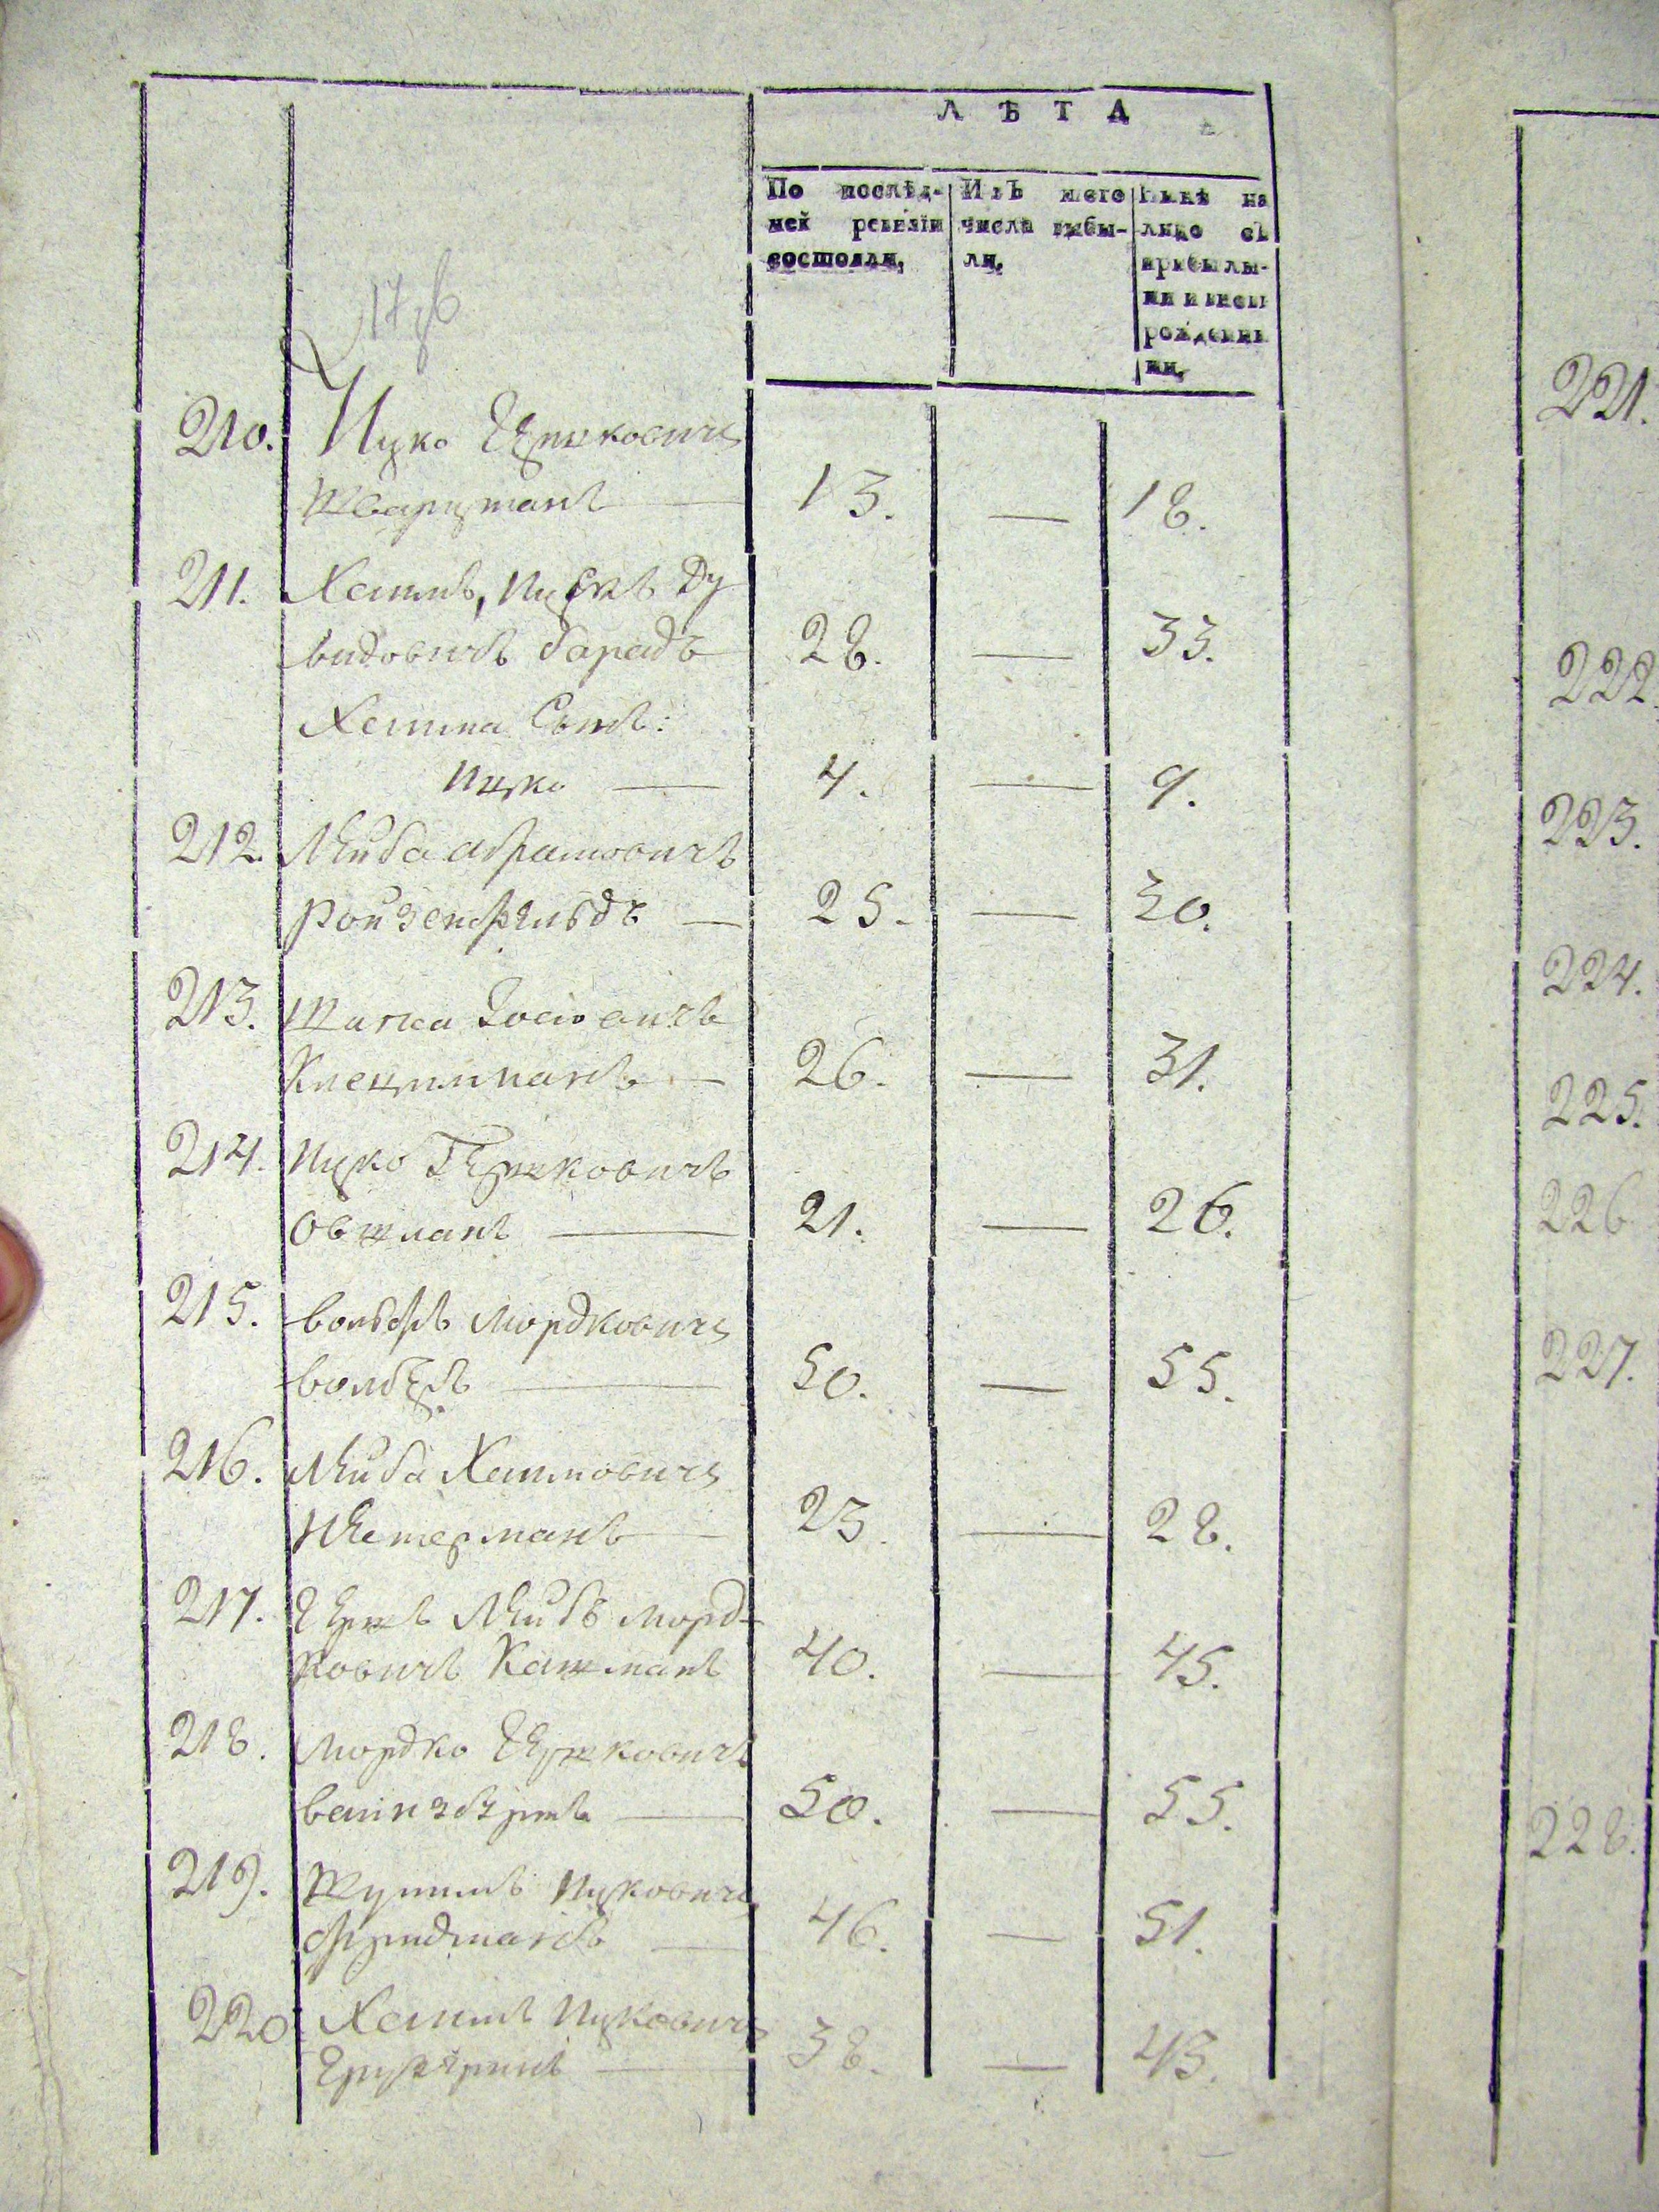 ЛѢТА
По послѣд-
ней ревизіи
состояли,
Изъ него
числа выбы-
ли,
Нынѣ на
лицо съ
прибылы-
ми и вновь
рожденны
ми,
210. Ицко Ершковичъ
Шварцманъ — 13. — 18.
211. Хаимъ, Ицекъ Ду
видовичъ барадъ 28. — 33.
Хаима Сынъ:
Ицко — 4. — 9.
212. Лейба абрамовичъ
Ройзенфельдъ — 25. — 30.
213.
Клецилманъ — 26. — 31.
214. Ицко Гершковичъ
— 21. — 26.
215. вольфъ Мордковичъ
— 50. — 55.
216. Лейба Хаимовичъ
23. — 28.
217. Ершъ Лейбъ Морд-
ковичъ Кашманъ 40. — 45.
218. Мордко Ершковичъ
— 50. — 55.
219. Шулимъ Ицковичъ
Фридманъ — 46. — 51.
220 Хаимъ Ицковичъ
— 38. — 43.
221.
222.
223.
224.
225.
226
227.
228.